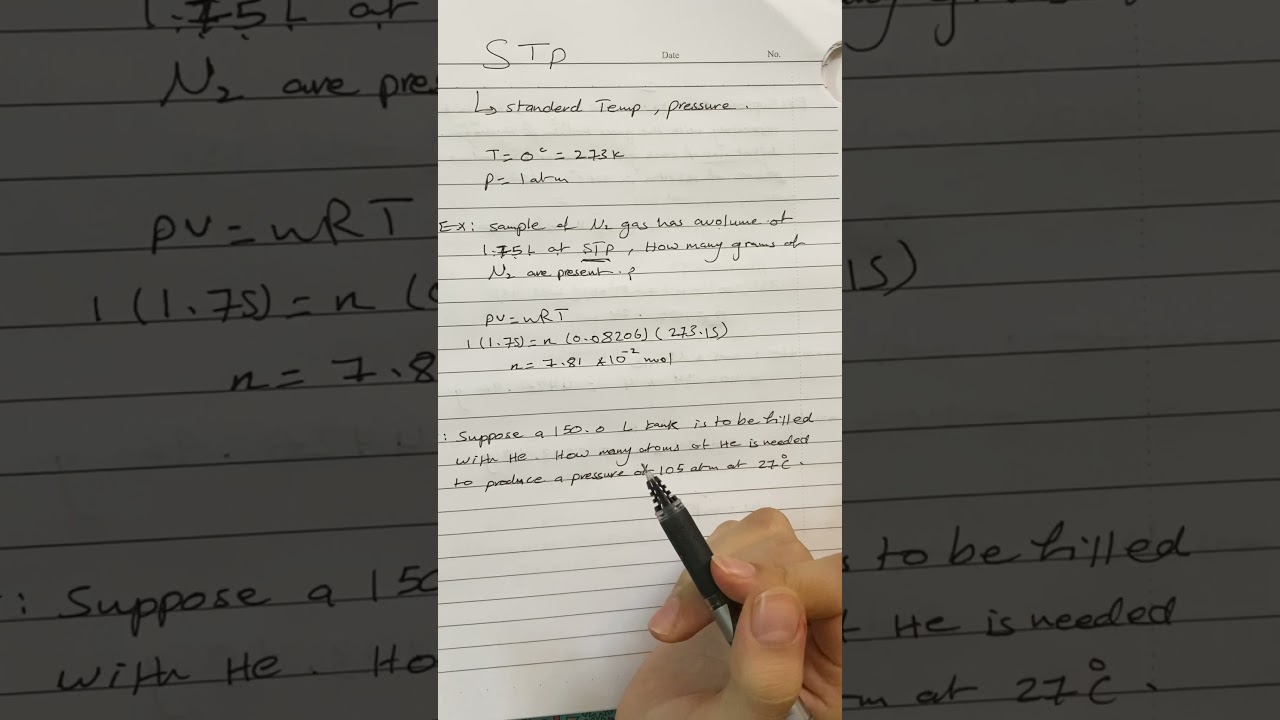 STP
Date No.
↳ standerd Temp, pressure.
T = 0°C = 273K
P = 1 atm
EX: sample of N₂ gas has a volume of
1.75 L at STP, How many grams of
N₂ are present.?
PV = nRT
1 (1.75) = n (0.08206) (273.15)
n = 7.81 × 10⁻² mol
: Suppose a 150.0 L tank is to be filled
with He. How many atoms of He is needed
to produce a pressure of 105 atm at 27°C.